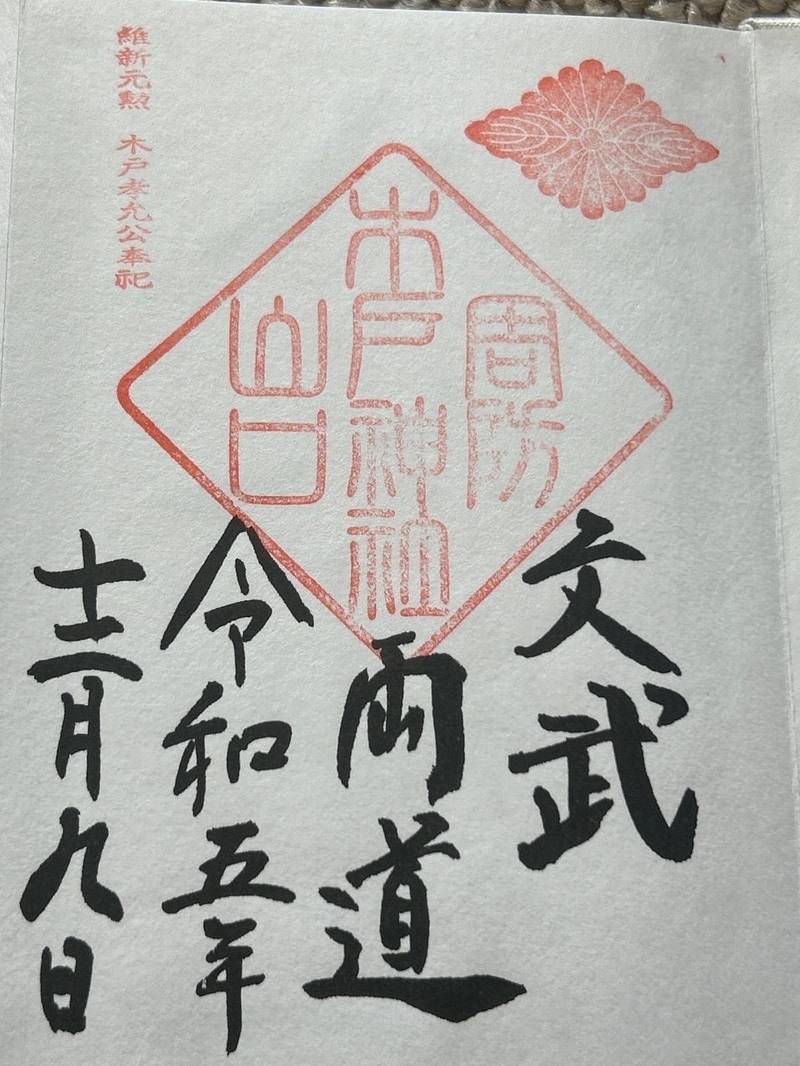 周防
木戸神社
山口
文武
両道
令和五年
十二月九日
維新元勲 木戸孝允公奉祀